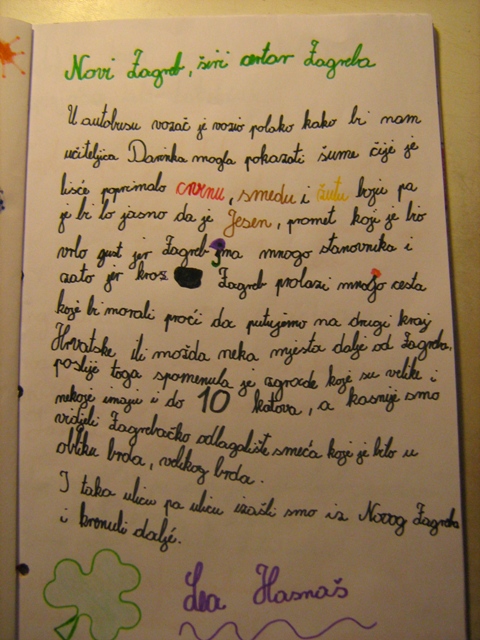 Novi Zagreb, širi centar Zagreba
U autobusu vozač je vozio polako kako bi nam
učiteljica Darinka mogla pokazati šume čije je
lišće poprimalo crvenu, smeđu i žutu boju pa
je bi lo jasno da je Jesen, promet koji je bio
vrlo gust jer Zagreb ima mnogo stanovnika i
zato jer kroz Zagreb prolazi mnogo cesta
koje bi morali proći da putujemo na drugi kraj
Hrvatske, ili možda neka mjesta dalje od Zagreba,
poslije toga spomenula je zgrade koje su velike i
nekoje imaju i do 10 katova, a kasnije smo
vidjeli Zagrebačko odlagalište smeća koje je bilo u
obliku brda, velikog brda.
I tako ulicu pa ulicu izašli smo iz Novog Zagreba
i krenuli dalje.
Lea Hasnaš